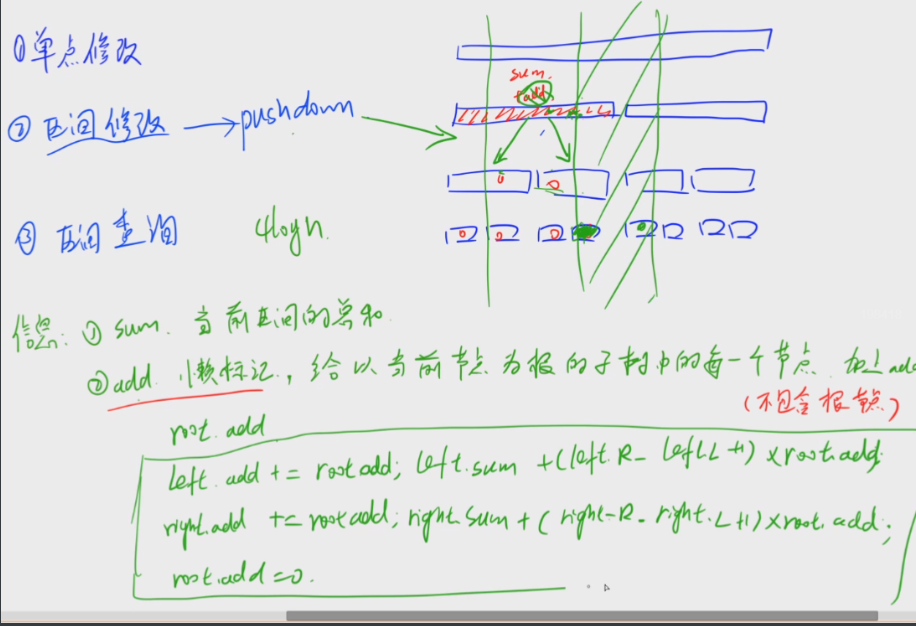 ①单点修改
sum.
add
② 区间修改 → pushdown
③ 区间查询 4logn.
信息: ① sum. 当前区间的总和.
② add. 懒标记, 给以当前节点为根的子树中的每一个节点 加上 add
(不包含根节点)
root.add
left.add += root.add; left.sum +(left.R - left.L +1) × root.add;
right.add += root.add; right.sum + (right.R - right.L +1) × root.add;
root.add = 0.